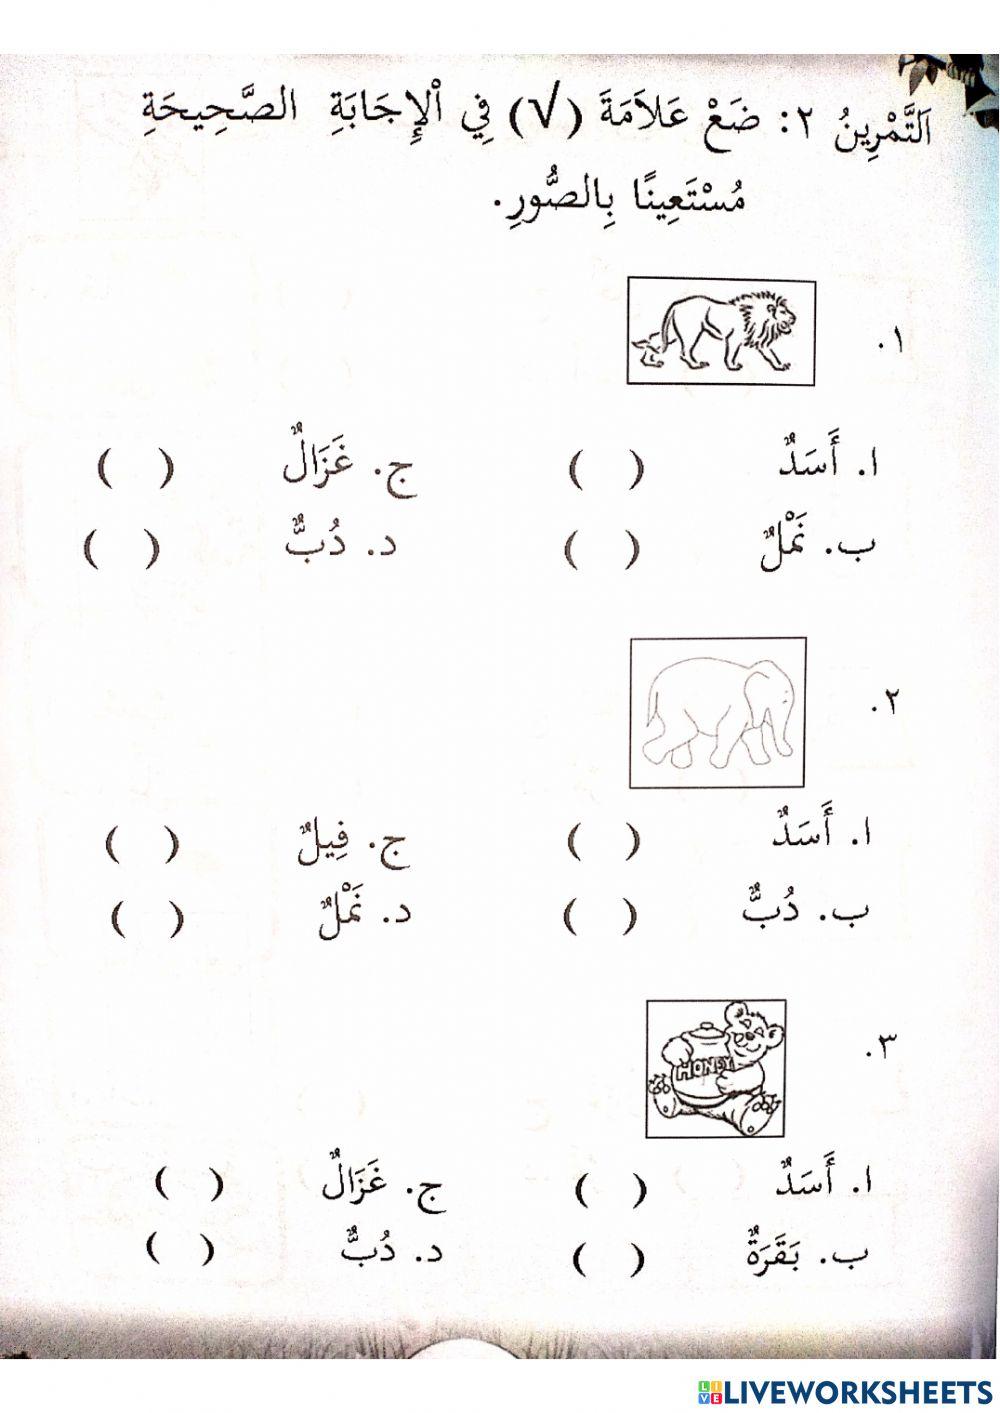 اَلتَّمْرِينُ ٢: ضَعْ عَلاَمَةَ (√) فِي ٱلْإِجَابَةِ الصَّحِيحَةِ
مُسْتَعِينًا بِالصُّورِ.
١.
ا. أَسَدٌ ( ) ج. غَزَالٌ ( )
ب. نَمْلٌ ( ) د. دُبٌّ ( )
٢.
ا. أَسَدٌ ( ) ج. فِيلٌ ( )
ب. دُبٌّ ( ) د. نَمْلٌ ( )
٣.
HONEY
ا. أَسَدٌ ( ) ج. غَزَالٌ ( )
ب. بَقَرَةٌ ( ) د. دُبٌّ ( )
LIVE LIVEWORKSHEETS